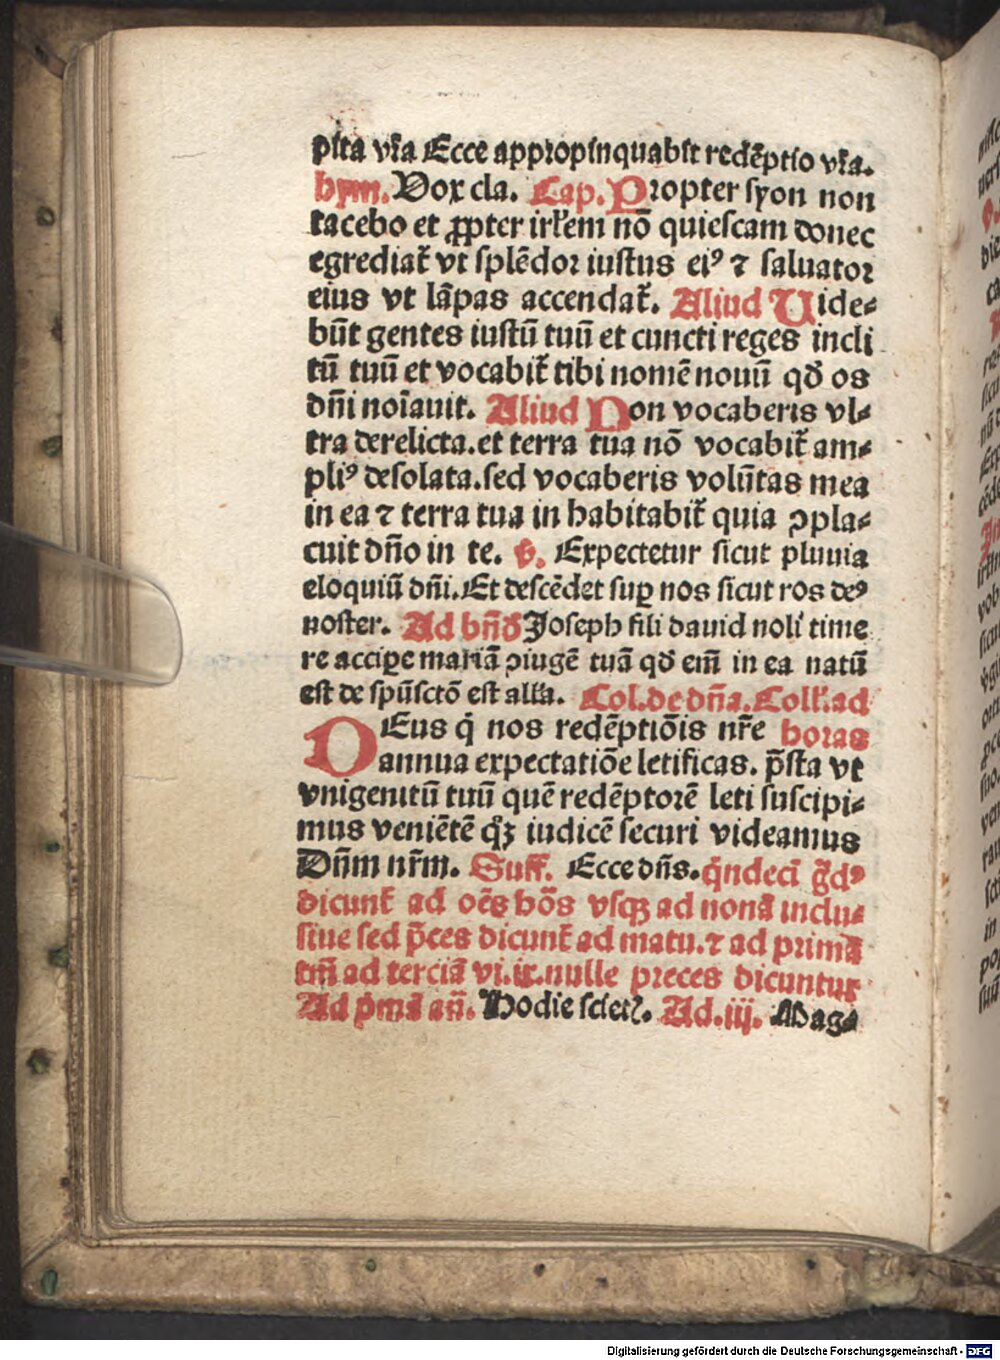 pita vr̃a Ecce appropinquabit redẽptio vr̃a.
hym. Vox cla. Cap. Propter syon non
tacebo et ꝓpter irl'em nõ quiescam donec
egrediat̃ vt splẽdor iustus ei⁹ ⁊ saluator
eius vt lãpas accendat̃. Aliud Uide⸗
bũt gentes iustũ tuũ et cuncti reges incli
tũ tuũ et vocabit̃ tibi nomẽ nouũ qđ os
dñi noĩauit. Aliud Non vocaberis vl⸗
tra derelicta. et terra tua nõ vocabit̃ am⸗
pli⁹ desolata. sed vocaberis volũtas mea
in ea ⁊ terra tua in habitabit̃ quia ꝯpla⸗
cuit dño in te. ℣. Expectetur sicut pluuia
eloquiũ dñi. Et descẽdet suꝑ nos sicut ros de⁹
noster. Ad bñđ Joseph fili dauid noli time
re accipe mariã ꝯiugẽ tuã qđ em̃ in ea natũ
est de spũsctõ est all'a. Col. de dña. Coll'. ad
DEus q̇ nos redẽptiõis nr̃e horas
annua expectatiõe letificas. p̃sta vt
vnigenitũ tuũ quẽ redẽptorẽ leti suscipi⸗
mus veniẽtẽ qͦꝫ iudicẽ securi videamus
Dñm nr̃m. Suff. Ecce dñs. q̇ndeci g̃d⁹
dicunt̃ ad oẽs hõs vsqꝫ ad nonã inclu⸗
siue sed p̃ces dicunt̃ ad matu. ⁊ ad primã
tm̃ ad terciã vi. ix. nulle preces dicuntur
Ad p̃mã añ. Hodie scietꝭ. Ad. iij. Mag⸗
Digitalisierung gefördert durch die Deutsche Forschungsgemeinschaft - DFG